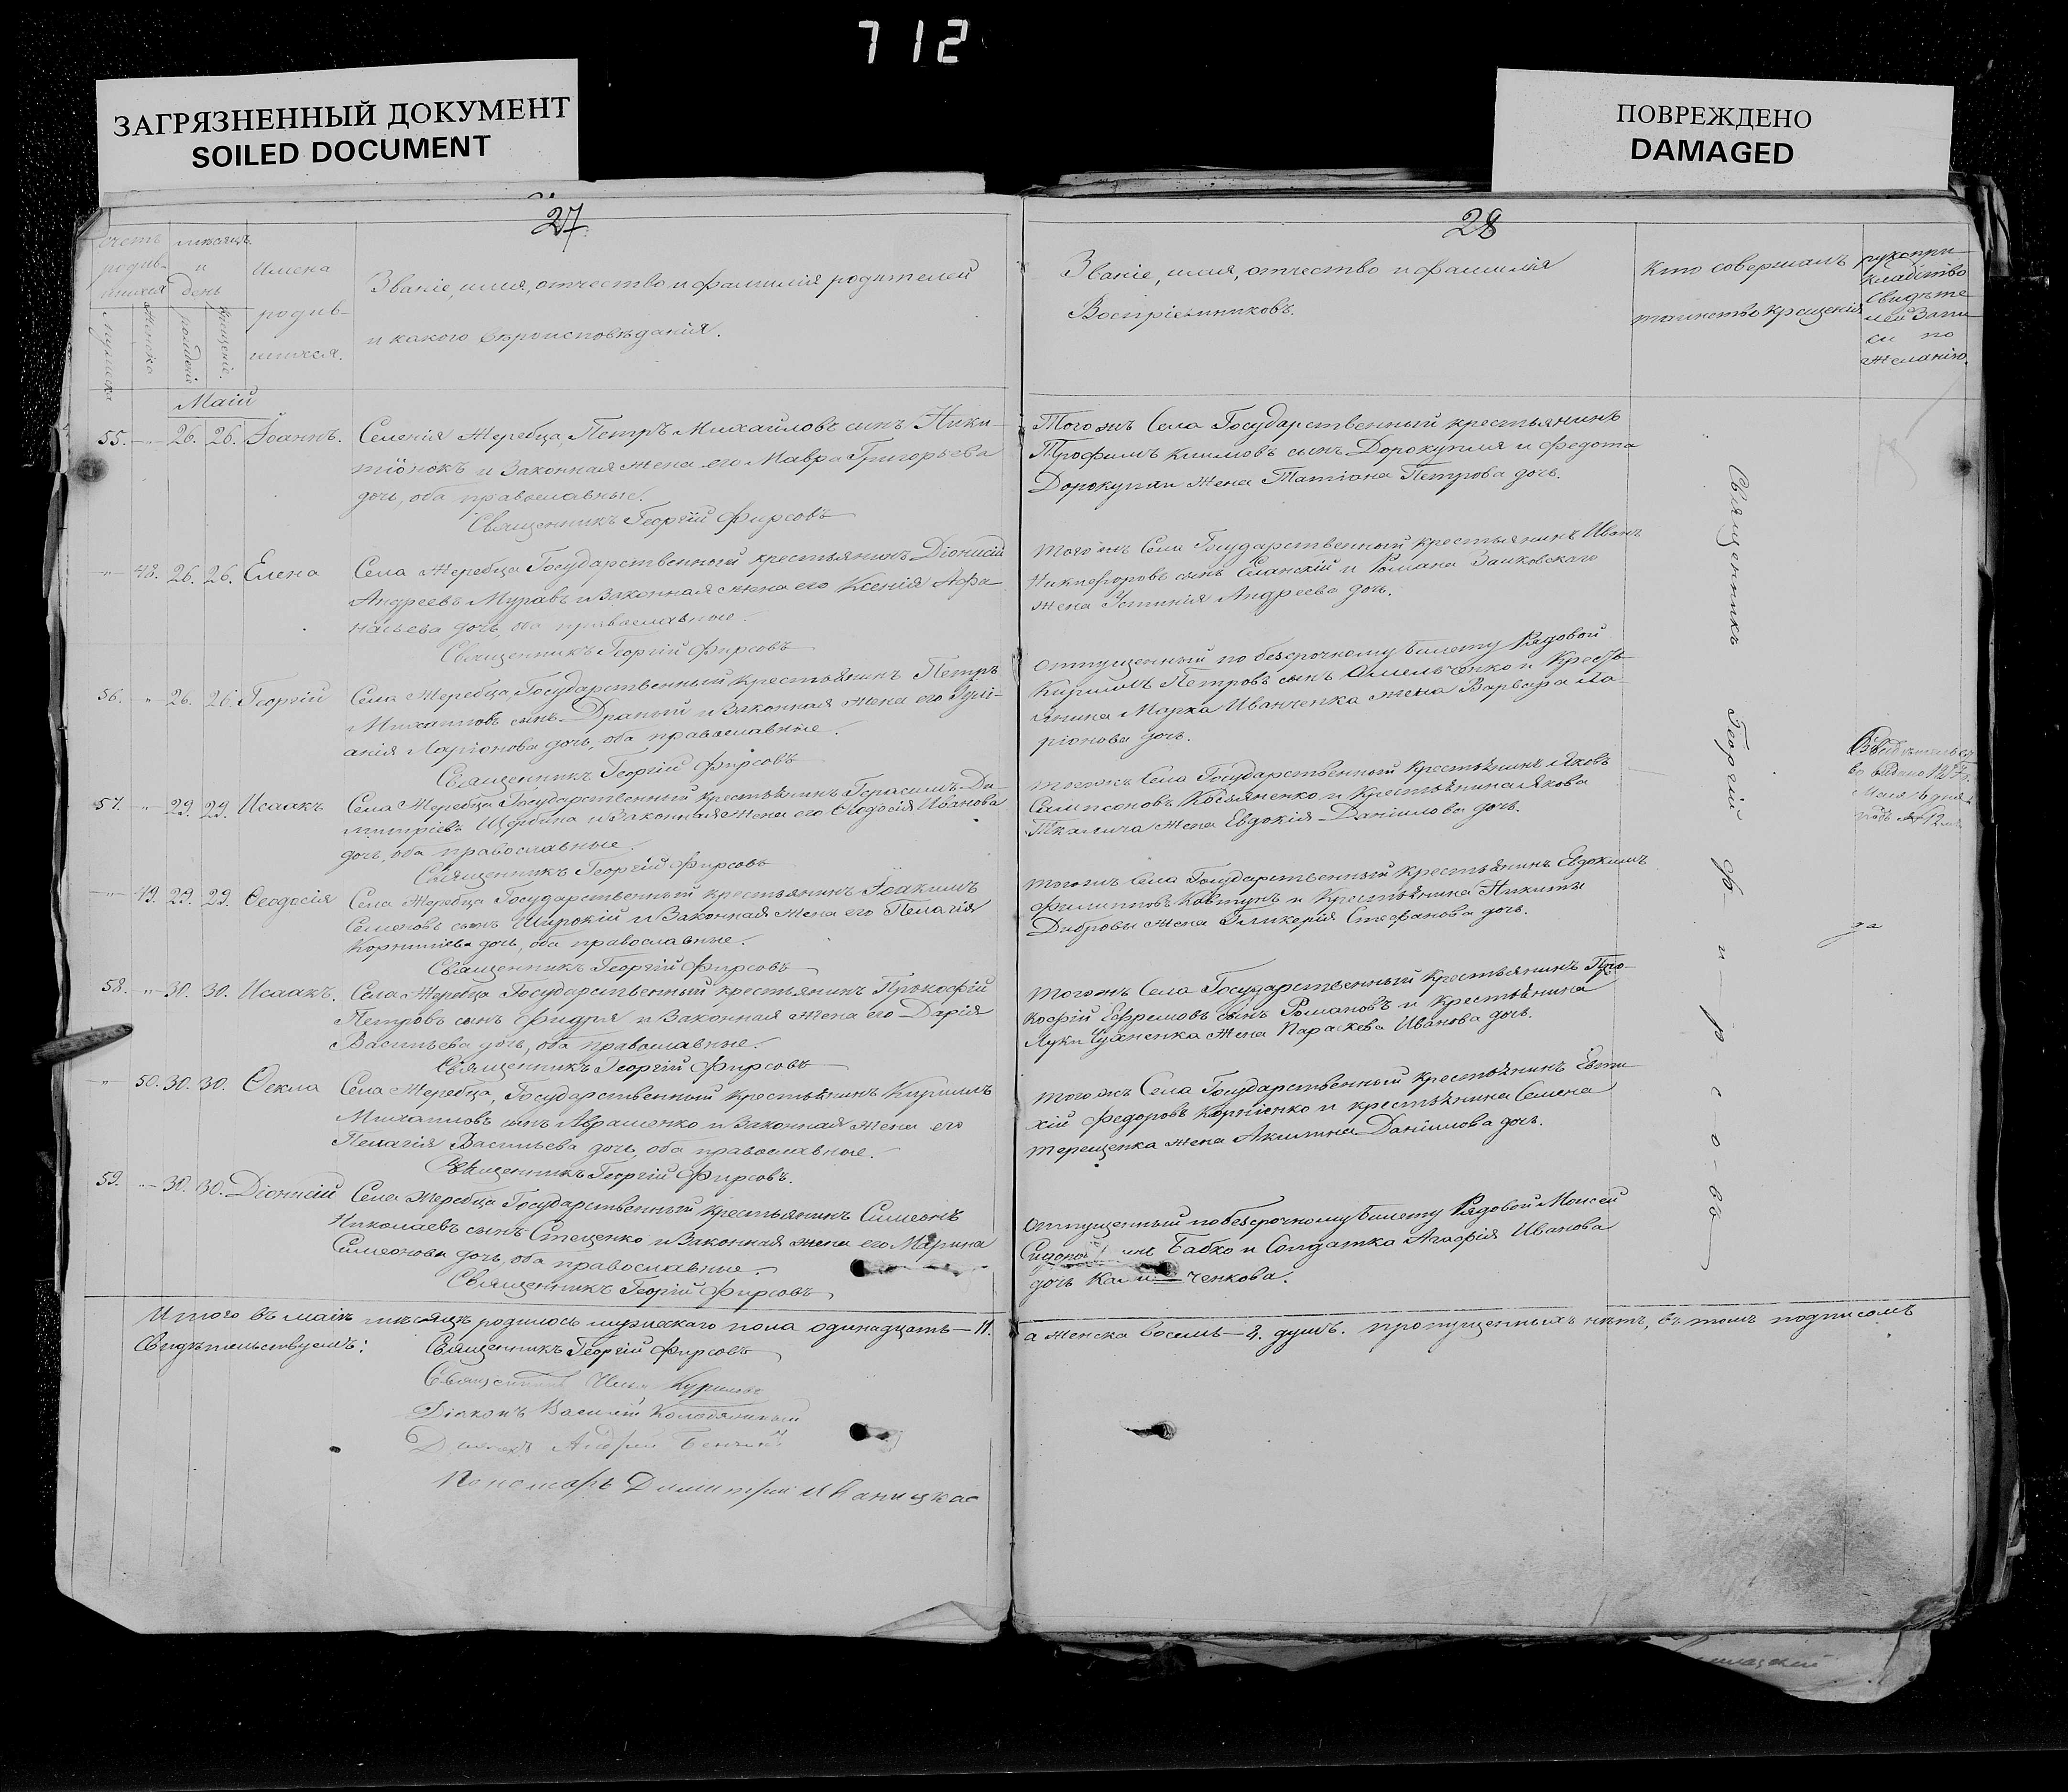 712
ЗАГРЯЗНЕННЫЙ ДОКУМЕНТ
SOILED DOCUMENT
ПОВРЕЖДЕНО
DAMAGED
27
счетъ
родив-
шихся
мужеска
женска
мѣсяцъ
и
день
рожденія
крещенія.
Имена
родив-
шихся.
Званіе, имя, отчество и фамилія родителей,
и какого вѣроисповѣданія.
Маій
55. 26. 26. Іоаннъ. Селенія Жеребца, Петръ Михайловъ сынъ Ники-
тіонокъ и законная жена его Мавра Григорьева
дочь, оба православные.
Священникъ Георгій Фирсовъ
48. 26. 26. Елена Села Жеребца Государственный крестьянинъ Діонисій
Андреевъ Муравъ и законная жена его Ксенія Афа-
насьева дочь, оба православные.
Священникъ Георгій Фирсовъ
56. 26. 26. Георгій Села Жеребца, Государственный крестьянинъ Петръ
Михайловъ сынъ Драный и законная жена его Іулі-
анія Ларіонова дочь, оба православные.
Священникъ Георгій Фирсовъ
57. 29. 29. Исаакъ Села Жеребца Государственный крестьянинъ Герасимъ Ди-
митріевъ Щербина и законная жена его Ѳеодосія Иванова
дочь, оба православные.
Священникъ Георгій Фирсовъ
49. 29. 29. Ѳеодосія Села Жеребца Государственный крестьянинъ Іоакимъ
Семеновъ сынъ Широкій и законная жена его Пелагія
Корниліева дочь, оба православные.
Священникъ Георгій Фирсовъ
58. 30. 30. Исаакъ. Села Жеребца Государственный крестьянинъ Прокофій
Петровъ сынъ Фидря и законная жена его Дарія
Васильева дочь, оба православные.
Священникъ Георгій Фирсовъ
50. 30. 30. Ѳекла Села Жеребца, Государственный крестьянинъ Кириллъ
Михайловъ сынъ Авраменко и законная жена его
Пелагія Васильева дочь, оба православные.
Священникъ Георгій Фирсовъ.
59. 30. 30. Діонисій Села Жеребца Государственный крестьянинъ Симеонъ
Николаевъ сынъ Стеценко и законная жена его Марина
Симеонова дочь, оба православные.
Священникъ Георгій Фирсовъ
Итого въ маіѣ мѣсяцѣ родилось мужескаго пола одинадцать—11.
Свидѣтельствуемъ:
Священникъ Георгій Фирсовъ
Священникъ
Діаконъ Василій
Андрей
Пономарь Димитрій
28
Званіе, имя, отчество и фамилія
Воспріемниковъ.
Кто совершалъ
таинство крещенія
рукопри-
кладство
свидѣте-
лей запи-
си по
желанію.
Тогожъ Села Государственный крестьянинъ
Трофимъ Климовъ сынъ Дорокупля и Федота
Дорокупли жена Татіана Петрова дочь.
Тогожъ Села Государственный крестьянинъ Иванъ
Никифоровъ сынъ Сланскій и Романа Заиковскаго
жена Устинія Андреева дочь.
Отпущенный по безсрочному билету Рядовой
Кириллъ Петровъ сынъ Омельченко и Крестъ-
янина Марка Иванченка жена Варвара Ла-
ріонова дочь.
Тогожъ Села Государственный крестьянинъ Яковъ
Сампсоновъ Косьяненко и Крестьянина Якова
Ткалича жена Евдокія Даніилова дочь.
Тогожъ Села Государственный крестьянинъ Евдокимъ
Филипповъ Ковтунъ и Крестьянина Никиты
Дибровы жена Гликерія Стефанова дочь.
Тогожъ Села Государственный крестьянинъ Про-
кофій Ефремовъ сынъ Романовъ и Крестьянина
Луки жена Параскева Иванова дочь.
Тогожъ Села Государственный крестьянинъ Евти-
хій Федоровъ Корніенко и крестьянина Семена
Терещенка жена Акилина Даніилова дочь.
Отпущенный по безсрочному билету Рядовой Моисей
Бабко и Солдатка Агафія Иванова
дочь
Священникъ Георгій Фирсовъ
да
а женска восемь—8. душъ. пропущенныхъ нѣтъ, въ томъ подписомъ